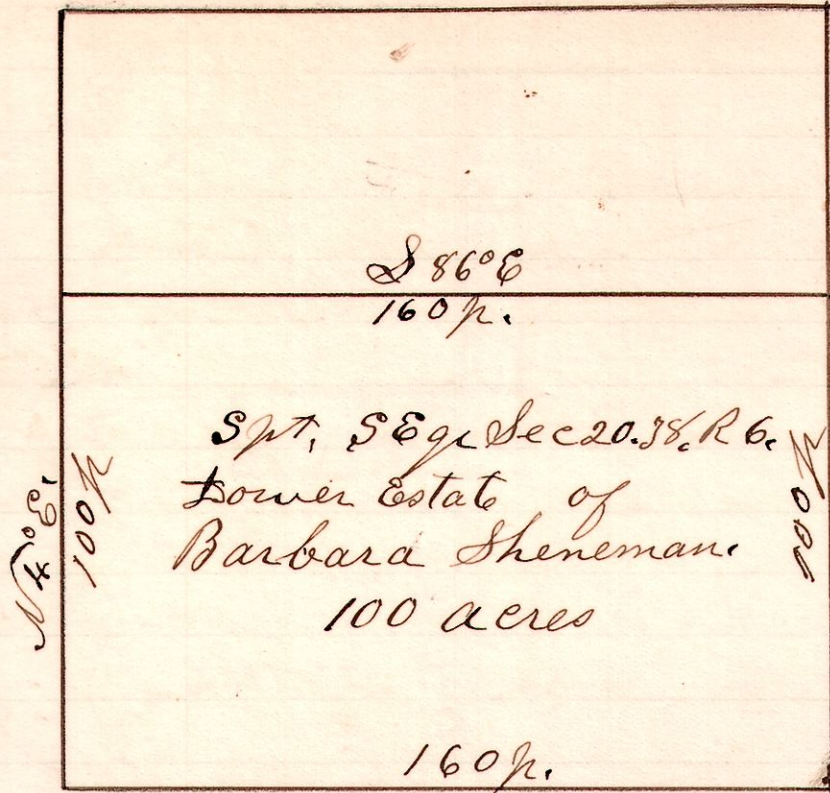 S 86° E
160 p.
S pt. S E qr Sec 20. T8. R 6.
Dower Estate of
Barbara Sheneman.
100 acres
N 4° E.
100 p
100 p
160 p.